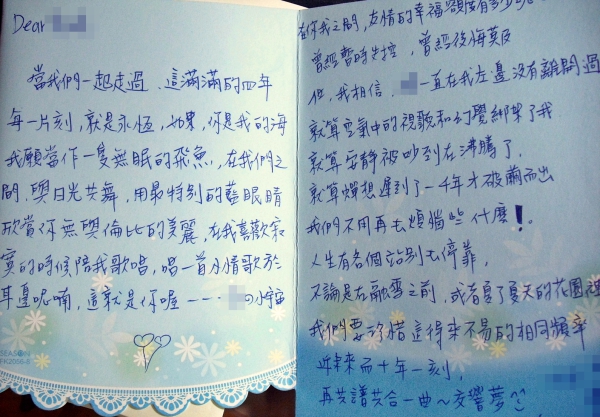 Dear
當我們一起走過、這滿滿的四年
每一片刻,就是永恆,如果,你是我的海
我願當作一隻無眠的飛魚,在我們之
間,與日光共舞,用最特別的藍眼睛
欣賞你無與倫比的美麗,在我喜歡寂
寞的時候陪我歌唱,唱一首小情歌於
耳邊呢喃,這就是你喔一一. 的小宇宙
SEASON
在你我之間,友情的幸福額度有多少
曾經暫時失控,曾經後悔莫及
但,我相信, 一直在我左邊沒有離開過
就算空氣中的視歌和幻覺綁架了我
就算安靜被吵到在沸騰了,
就算蟬想遲到了一千年才破繭而出
我們不用再去煩惱些什麼!。
人生有各個站別去停靠,
不論是右融雪之前,或者夏了夏天的花園裡
我們要珍惜這得來不易的相同頻率
近未來而十年一刻,
再共譜共合一曲～交響夢